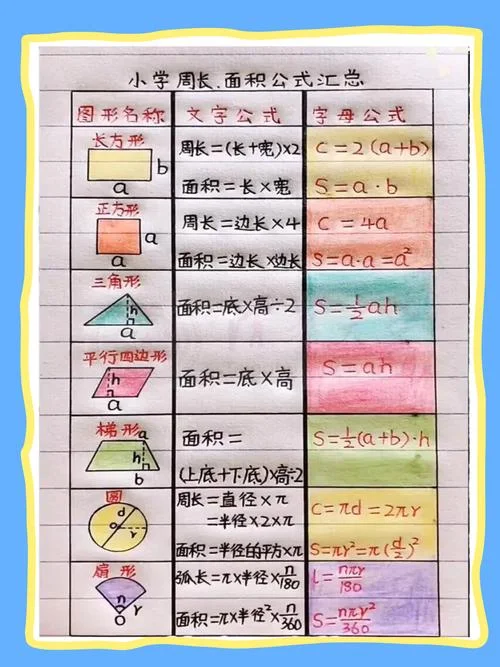 小学周长、面积公式汇总
图形名称 文字公式 字母公式
长方形
b
a
周长=(长+宽)×2
C=2(a+b)
面积=长×宽
S=a·b
正方形
a
a
周长=边长×4
C=4a
面积=边长×边长
S=a·a=a²
三角形
h
a
面积=底×高÷2
S=½ah
平行四边形
h
a
面积=底×高
S=ah
梯形
a
h
b
面积=
(上底+下底)×高÷2
S=½(a+b)·h
圆
d
r
周长=直径×π
=半径×2×π
C=πd=2πr
面积=半径的平方×π
S=πr²=π(d/2)²
扇形
n
r
O
弧长=π×半径×n/180
l=nπr/180
面积=π×半径²×n/360
S=nπr²/360